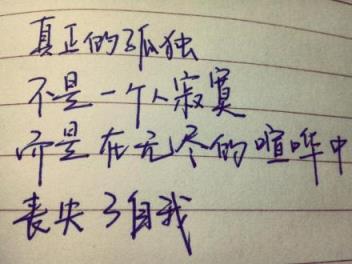 真正的孤独
不是一个人寂寞
而是在无尽的喧哗中
丧失了自我